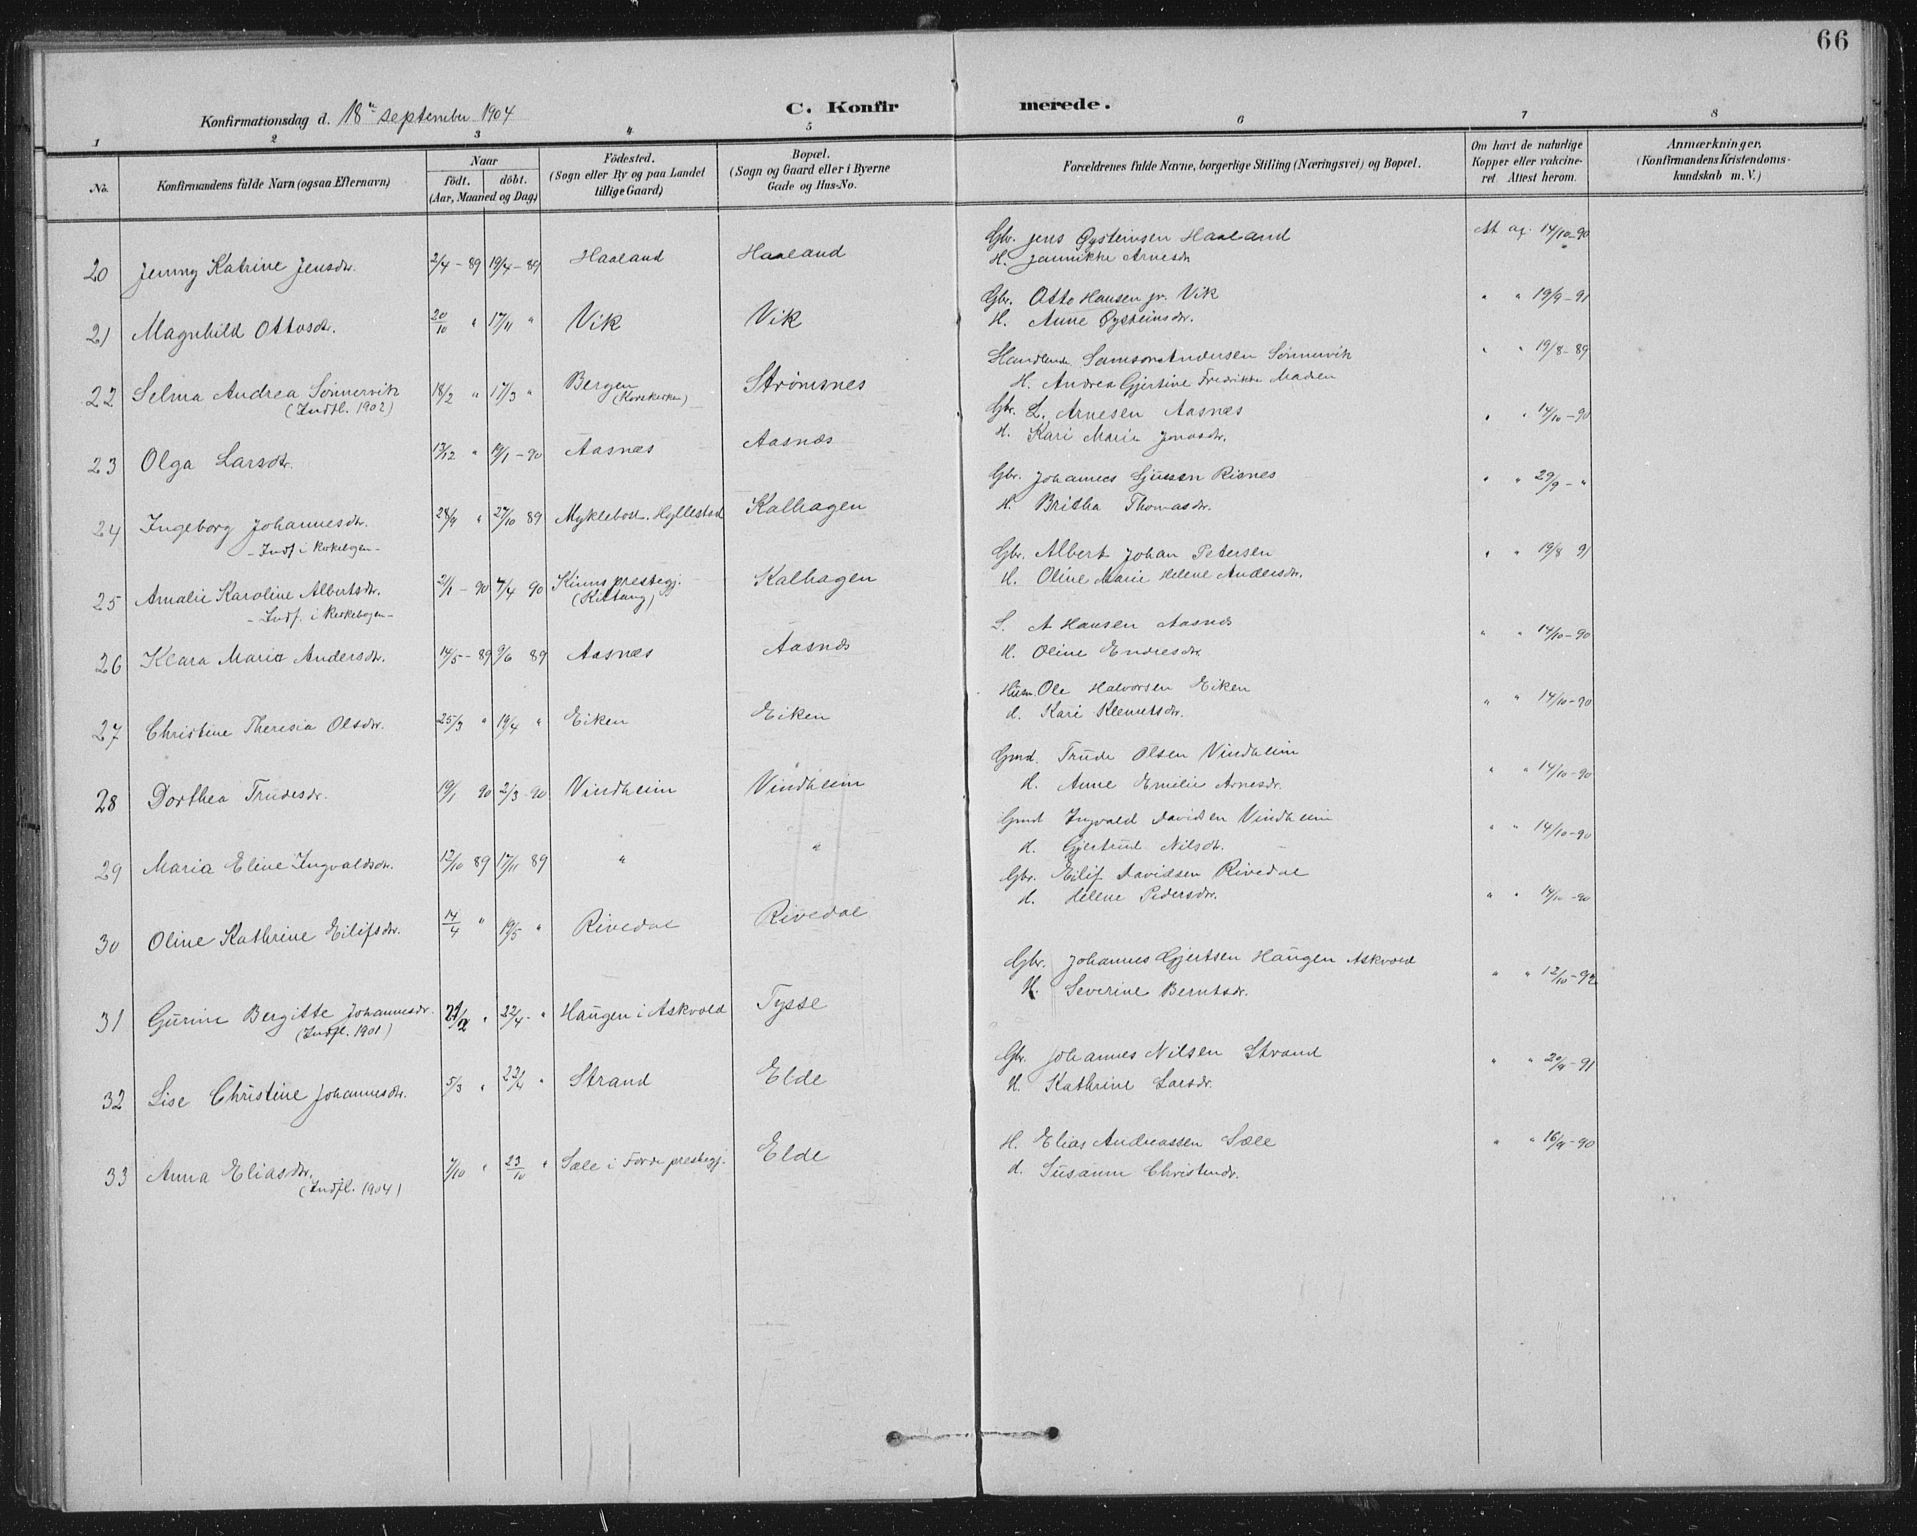 66
Konfirmationsdag d. 18de september 1904 C. Konfirmerede.
1 2 3 4 5 6 7 8
No. Konfirmandens fulde Navn (ogsaa Efternavn) Naar födt. döbt. (Aar, Maaned og Dag) Födested. (Sogn eller By og paa Landet tillige Gaard) Bopæl. (Sogn og Gaard eller i Byerne Gade og Hus-No. Forældrenes fulde Navne, borgerlige Stilling (Næringsvei) og Bopæl. Om havt de naturlige Kopper eller vakcineret. Attest herom. Anmærkninger, (Konfirmandens Kristendomskundskab m. V.)
Gbr. Jens Øysteinsen Haaland At. af. 14/10-90
20 Jenny Katrine Jensdtr. 2/4-89 19/4-89 Haaland Haaland H. Jannikke Arnesdtr.
Gbr. Otto Hansen jr. Vik " " 19/9-91
21 Magnhild Ottosdtr. 20/10 " 17/11 " Vik Vik H. Anne Øysteinsdtr.
Handlende Samson Andersen Sønnervik " " 19/8-89
22 Selma Andrea Sønnervik 18/2 " 17/3 " Bergen Strømsnes H. Andrea Gjertine Fredrikke Madsen
(Indfl. 1902) (Korskirken)
Gbr. L. Arnesen Aasnæs " " 14/10-90
23 Olga Larsdtr. 13/12 " 19/1-90 Aasnæs Aasnæs H. Kari Marie Jonasdtr.
Gbr. Johannes Sjursen Risnes " " 29/9-"
24 Ingeborg Johannesdtr. 28/9 " 27/10 89 Myklebost. Hyllestad Kalhagen H. Britha Thomasdtr.
-Indf i kirkebogen-
Gbr. Albert Johan Petersen " " 19/8 91
25 Amalie Karoline Albertsdtr. 2/1-90 7/4 90 Kinns prestegj. Kalhagen H. Oline Marie Helene Andersdtr.
-Indf. i kirkebogen- (Kittang)
S. A Hansen Aasnæs " " 14/10-90
26 Klara Maria Andersdtr. 14/5-89 9/6 89 Aasnæs Aasnæs H. Oline Endresdtr.
Husm. Ole Halvorsen Eiken " " 14/10-90
27 Christine Theresia Olsdtr. 25/3 " 19/4 " Eiken Eiken H. Kari Klemetsdtr.
Gmd. Trude Olsen Vindheim " " 14/10-90
28 Dorthea Trudesdr. 19/1 90 2/3-90 Vindheim Vindheim H. Anne Emilie Arnesdr.
Gmd Ingvald Davidsen Vindheim " " 14/10-90
29 Maria Eline Ingvaldsdtr. 12/10 89 17/11 89 " " H. Gjertrud Nilsdtr.
Gbr. Eilif Davidsen Rivedal " " 14/10-90
30 Oline Kathrine Eilifsdtr. 14/4 " 19/5 " Rivedal Rivedal H. Helene Pedersdtr.
Gbr. Johannes Gjertsen Haugen Askvold " " 12/10-92
31 Gurine Bergitte Johannesdr. 21/2 " 22/4 " Haugen i Askvold Tysse H. Severine Berntsdr.
(Indfl. 1901)
Gbr. Johannes Nilsen Strand " " 20/9-91
32 Lise Christine Johannesdtr. 5/3 " 22/4 " Strand Elde H. Kathrine Larsdr.
H. Elias Andreassen Sæle " " 16/9-90
33 Anna Eliasdtr. 7/10 " 23/10 " Sæle i Førde prestegj. Elde H. Susanne Christensdr.
(Indfl. 1904)